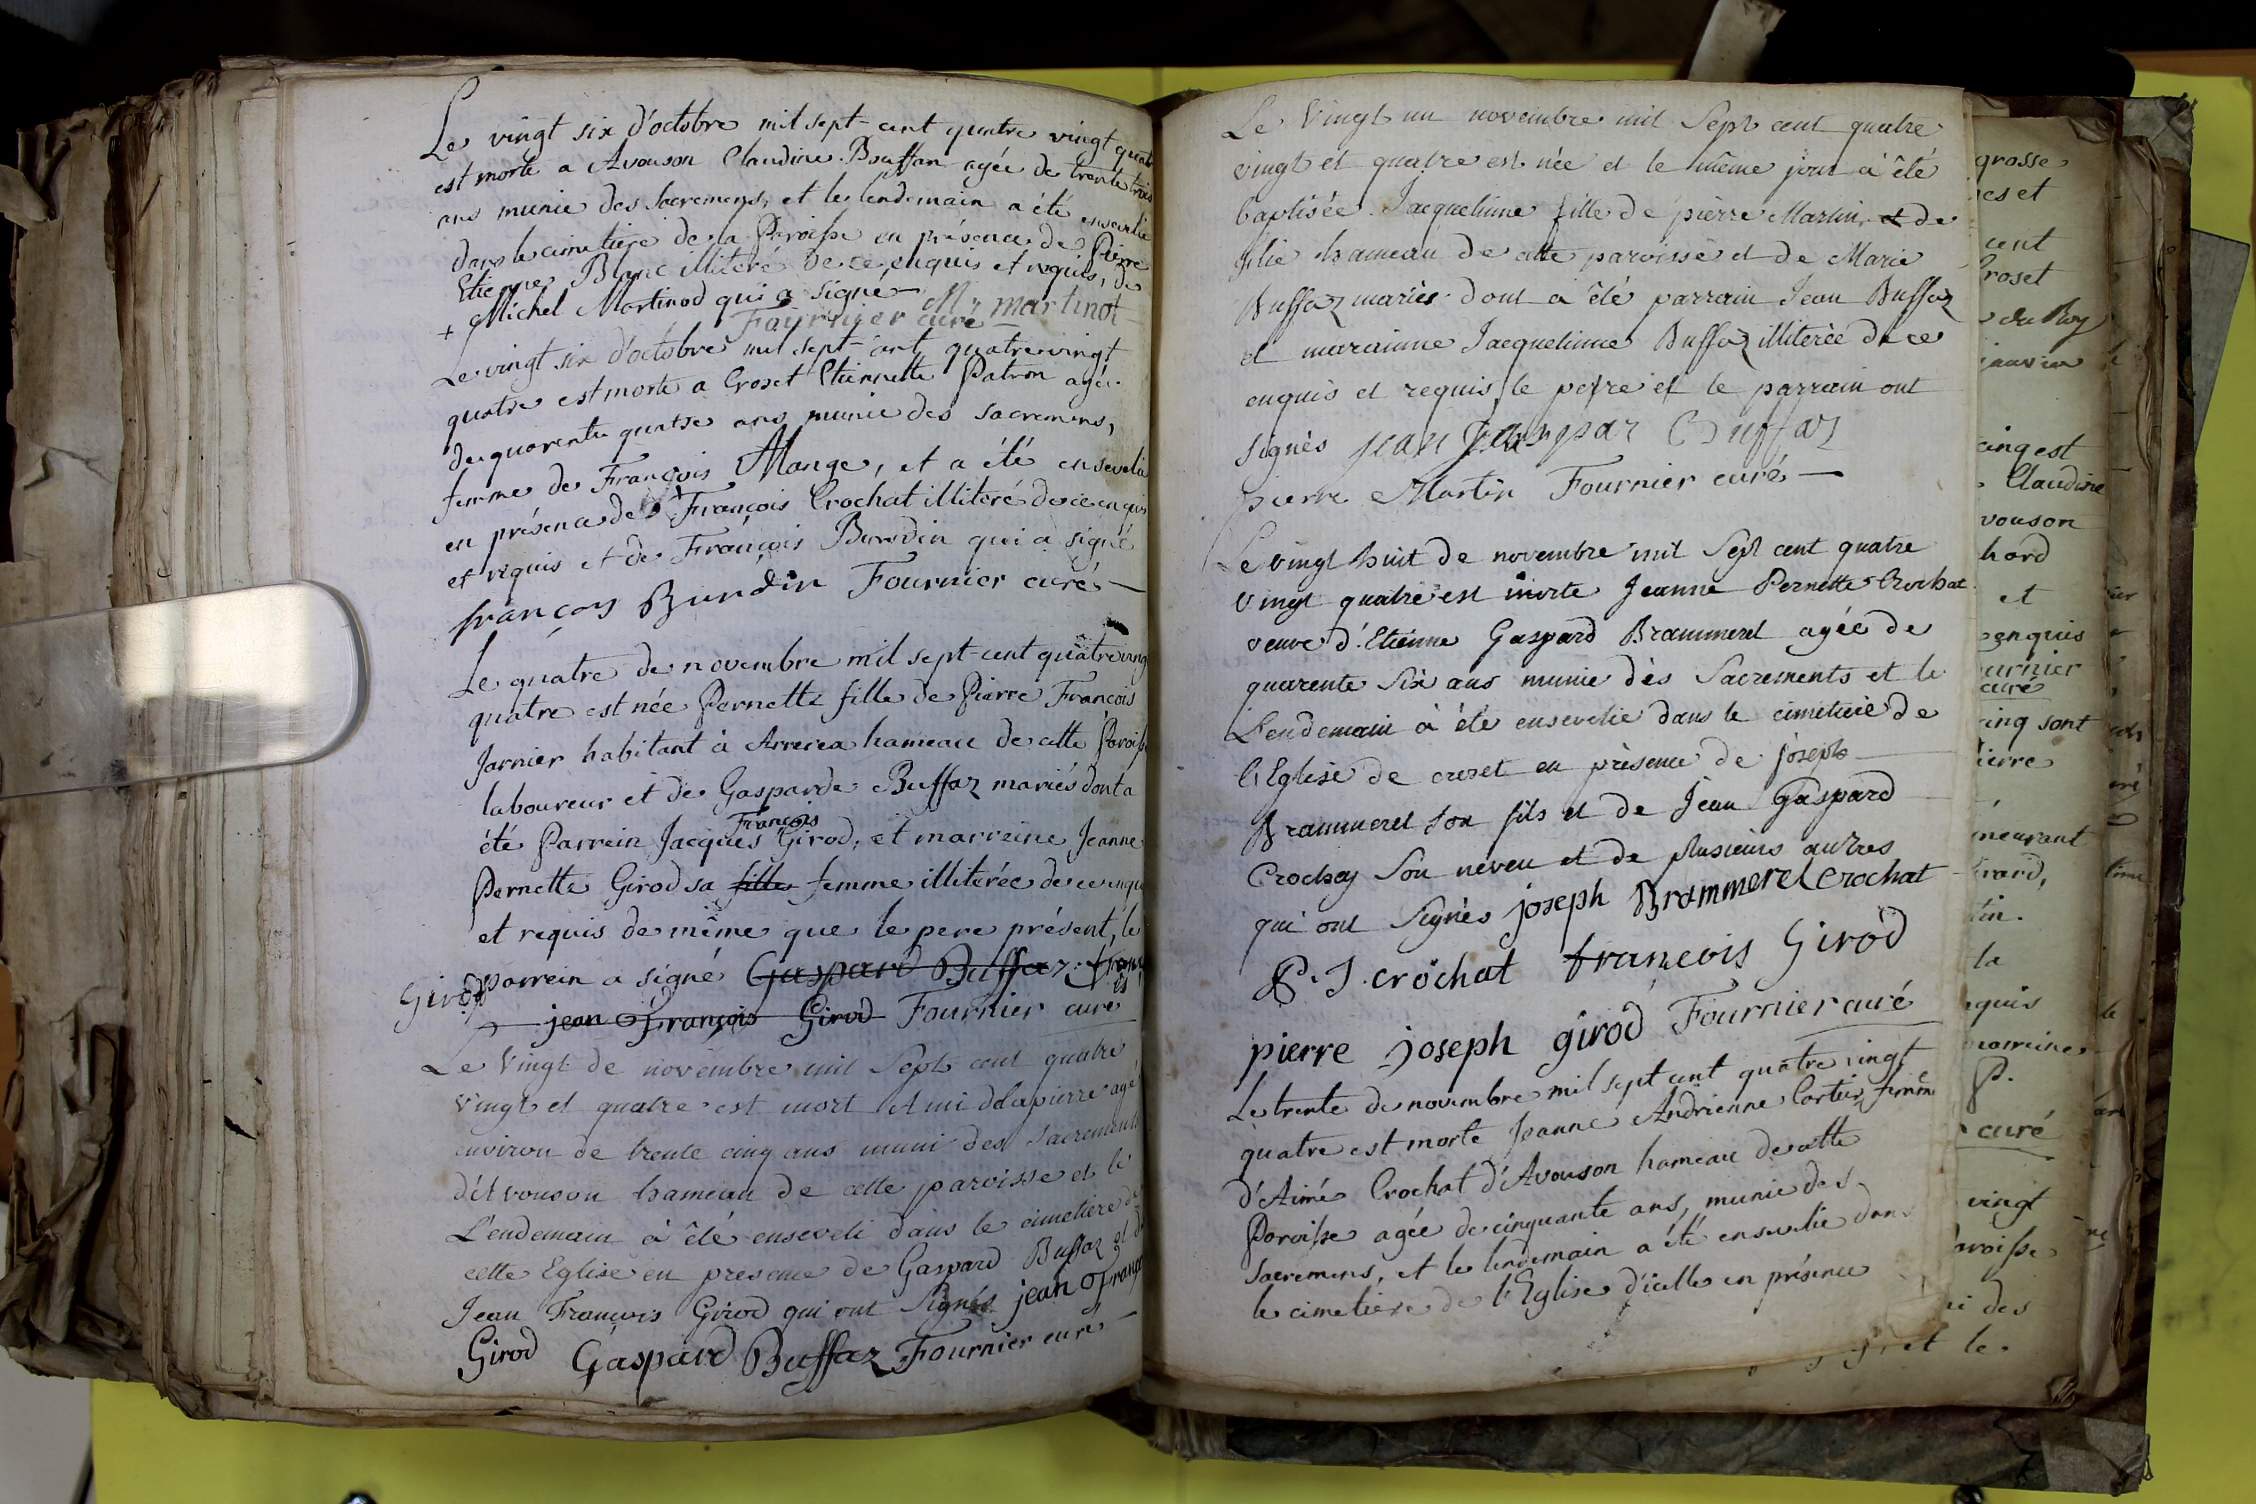 Le vingt six d'octobre mil sept-cent quatre vingt quatre
est morte a Avouson Claudine Bouffan agée de trente trois
ans munie des Sacremens, et le lendemain a été ensevelie
dans le cimetiére de la Paroisse en présence de Pierre
Etienne Blanc illiteré de ce enquis et requis, de
+ Michel Martinod qui a signé — My martinot
Fournier curé —
Le vingt six d'octobre mil sept-cent quatrevingt
quatre est morte a Croset Etiennette Patron agée
de quarente quatre ans munie des sacremens,
femme de François Mange, et a été ensevelie
en présence de François Crochat illiteré de ce enquis
et requis et de François Burdin qui a signé
françoy Burdin Fournier curé —
Le quatre de novembre mil sept-cent quatrevingt
quatre est née Pernette fille de Pierre François
Jarnier habitant à hameau de cette Paroisse
laboureur et de Gasparde Buffaz mariés dont a
François
été Parrein Jacques Girod, et marreine Jeanne
Pernette Girod sa fille femme illiterée de ce enquis
et requis de même que le pere présent, le
parrein a signé Gaspard Buffaz
Girod jean François Girod Fournier curé
Le Vingt de novembre mil Sept cent quatre
vingt et quatre est mort Ami delapierre agé
environ de trente cinq ans muni des Sacrements
d'Avouson hameau de cette paroisse et le
L'endemain à êté enseveli dans le cimetiere de
cette Eglise en presence de Gaspard Buffaz et de
Jean François Girod qui ont Signés jean François
Girod Gaspard Buffaz Fournier curé —
Le Vingt un novembre mil Sept cent quatre
vingt et quatre est née et le même jour à êté
baptisée Jacquelinne fille de pierre Martin et de
hameau de cette paroisse et de Marie
Buffaz mariés dont à êté parrain Jean Buffaz
et marainne Jacquelinne Buffaz illiterée de ce
enquis et requis le pere et le parrain ont
signés jean gaspar Buffaz
pierre Martin Fournier curé —
Le vingt huit de novembre mil Sept cent quatre
Vingt quatre est morte Jeanne Pernette Crochat
veuve d'Etienne Gaspard Brammerel agée de
quarente Six ans munie dès Sacrements et le
L'endemain à êté ensevelie dans le cimetiere de
l'Eglise de crozet en présence de joseph
Brammerel son fils et de Jean Gaspard
Crochay Son neveu et de plusieurs autres
qui ont Signés joseph Brammerel crochat
P. J. crochat françois Girod
pierre joseph girod Fournier curé
Le trente de novembre mil sept cent quatre vingt
quatre est morte Jeanne Andrienne Cortier femme
d'Aimé Crochat d'Avouson hameau de cette
Paroisse agée de cinquante ans, munie des
Sacremens, et le lendemain a été ensevelie dans
le cimetiére de l'Eglise d'icelle en présence
grosse
et
cent
Croset
du Roy
cinq est
Claudine
vouson
et
enquis
curé
cinq sont
la
P.
curé
vingt
Paroisse
des
et le